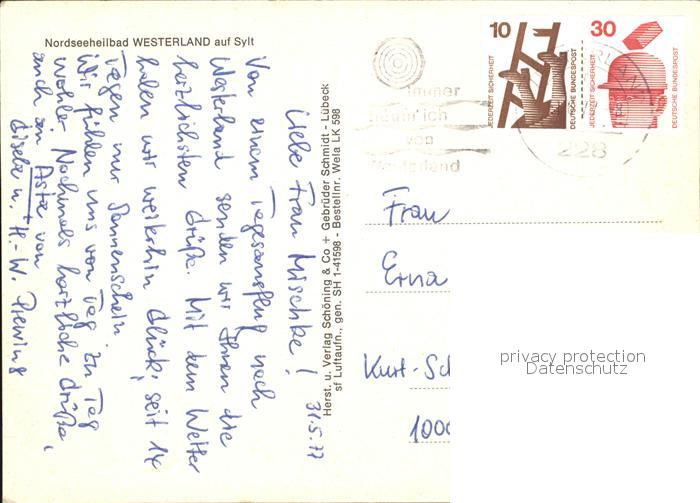 Nordseeheilbad WESTERLAND auf Sylt
31.5.77
Liebe Frau Mischke!
Von einem Tagesausflug nach
Westerland senden wir Ihnen die
herzlichsten Grüße. Mit dem Wetter
haben wir weiterhin Glück, seit 14
Tagen nur Sonnenschein.
Wir fühlen uns von Tag zu Tag
wohler. Nochmals herzliche Grüße,
auch an Asta von
Gisela u. H.-W.
Herst. u. Verlag Schöning & Co + Gebrüder Schmidt - Lübeck
sf Luftaufn., gen. SH 1-41598 - Bestellnr. Wela LK 598
immer
von
Westerland
228
10
JEDERZEIT SICHERHEIT
DEUTSCHE BUNDESPOST
30
JEDERZEIT SICHERHEIT
DEUTSCHE BUNDESPOST
Frau
Erna
Kurt-Sc
1000
privacy protection
Datenschutz